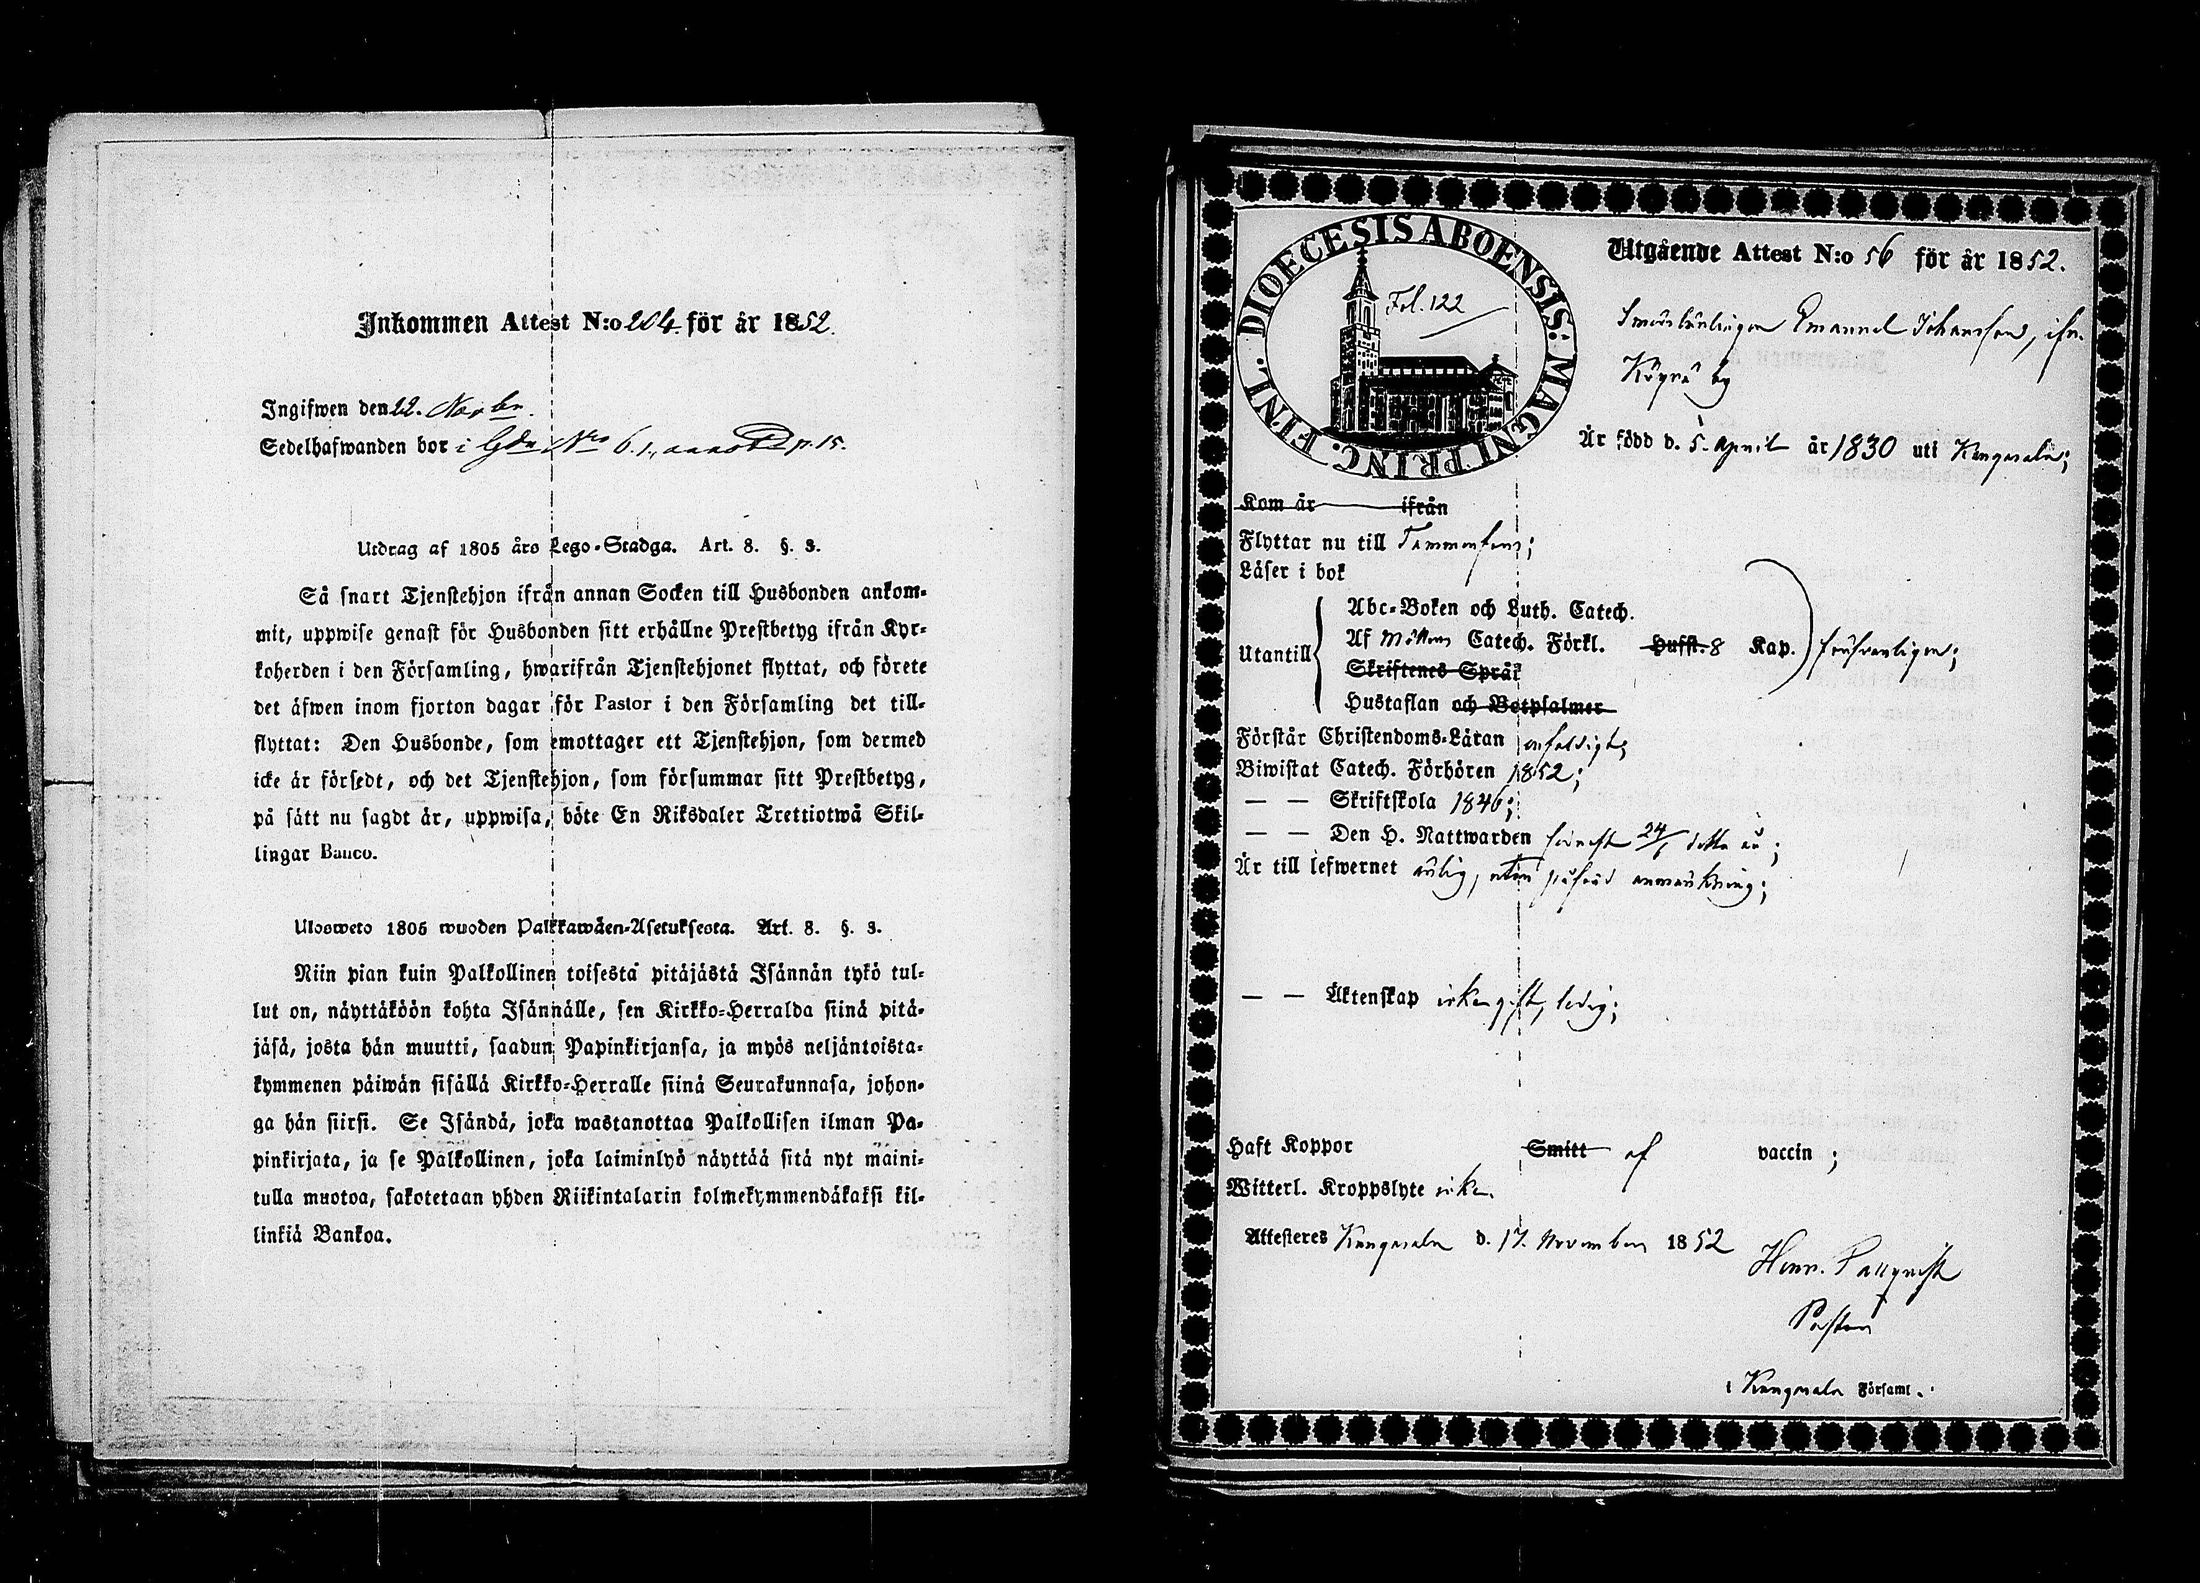 Inkommen Attest N:o 204 för år 1852.
Ingifwen den 22. Novbr.
Sedelhafwanden bor i Gdn Nro 6. p. 15.
Utdrag af 1805 års Lego-Stadga. Art. 8. §. 3.
Så snart Tjenstehjon ifrån annan Socken till Husbonden ankom-
mit, uppwise genast för Husbonden sitt erhållne Prestbetyg ifrån Kyr-
koherden i den Församling, hwarifrån Tjenstehjonet flyttat, och förete
det äfwen inom fjorton dagar för Pastor i den Församling det till-
flyttat: Den Husbonde, som emottager ett Tjenstehjon, som dermed
icke är försedt, och det Tjenstehjon, som försummar sitt Prestbetyg,
på sätt nu sagdt är, uppwisa, böte En Riksdaler Trettiotwå Skil-
lingar Banco.
Ulosweto 1805 wuoden Palkkawäen-Asetuksesta. Art. 8. §. 3.
Niin pian kuin Palkollinen toisesta pitäjästä Isännän tykö tul-
lut on, näyttäköön kohta Isännälle, sen Kirkko-Herralda siinä pitä-
jäsä, josta hän muutti, saadun Papinkirjansa, ja myös neljäntoista-
kymmenen päiwän sisällä Kirkko-Herralle siinä Seurakunnasa, johon-
ga hän siirsi. Se Isändä, joka wastanottaa Palkollisen ilman Pa-
pinkirjata, ja se Palkollinen, joka laiminlyö näyttää sitä nyt maini-
tulla muotoa, sakotetaan yhden Riikintalarin kolmekymmendäkaksi kil-
linkiä Bankoa.
DIOECESIS ABOENSIS: MAGNI PRINC. FINL.
Fol. 122
Utgående Attest N:o 56 för år 1852.
Smedslärlingen Emanuel Johansson, ifn.
Köyrä by
Är född d. 5. April år 1830 uti Kangasala;
Kom år ifrån
Flyttar nu till Tammerfors;
Läser i bok
Utantill
Abc-Boken och Luth. Catech.
Af Möllers Catech. Förkl. Hufst. 8 Kap.
Skriftenes Språk
Hustaflan och Botpsalmer
försvarligen;
Förstår Christendoms-Läran enfaldigt;
Biwistat Catech. Förhören 1852;
— — Skriftskola 1846;
— — Den H. Nattwarden senast 24/6 detta år;
Är till lefwernet ärlig, utan påförd anmärkning;
— — Äktenskap icke gift, ledig;
Haft Koppor Smitt af vaccin ;
Witterl. Kroppslyte icke.
Attesteres Kangasala d. 17. November 1852
Henr. Pallqvist
Pastor
i Kangasala Församl.